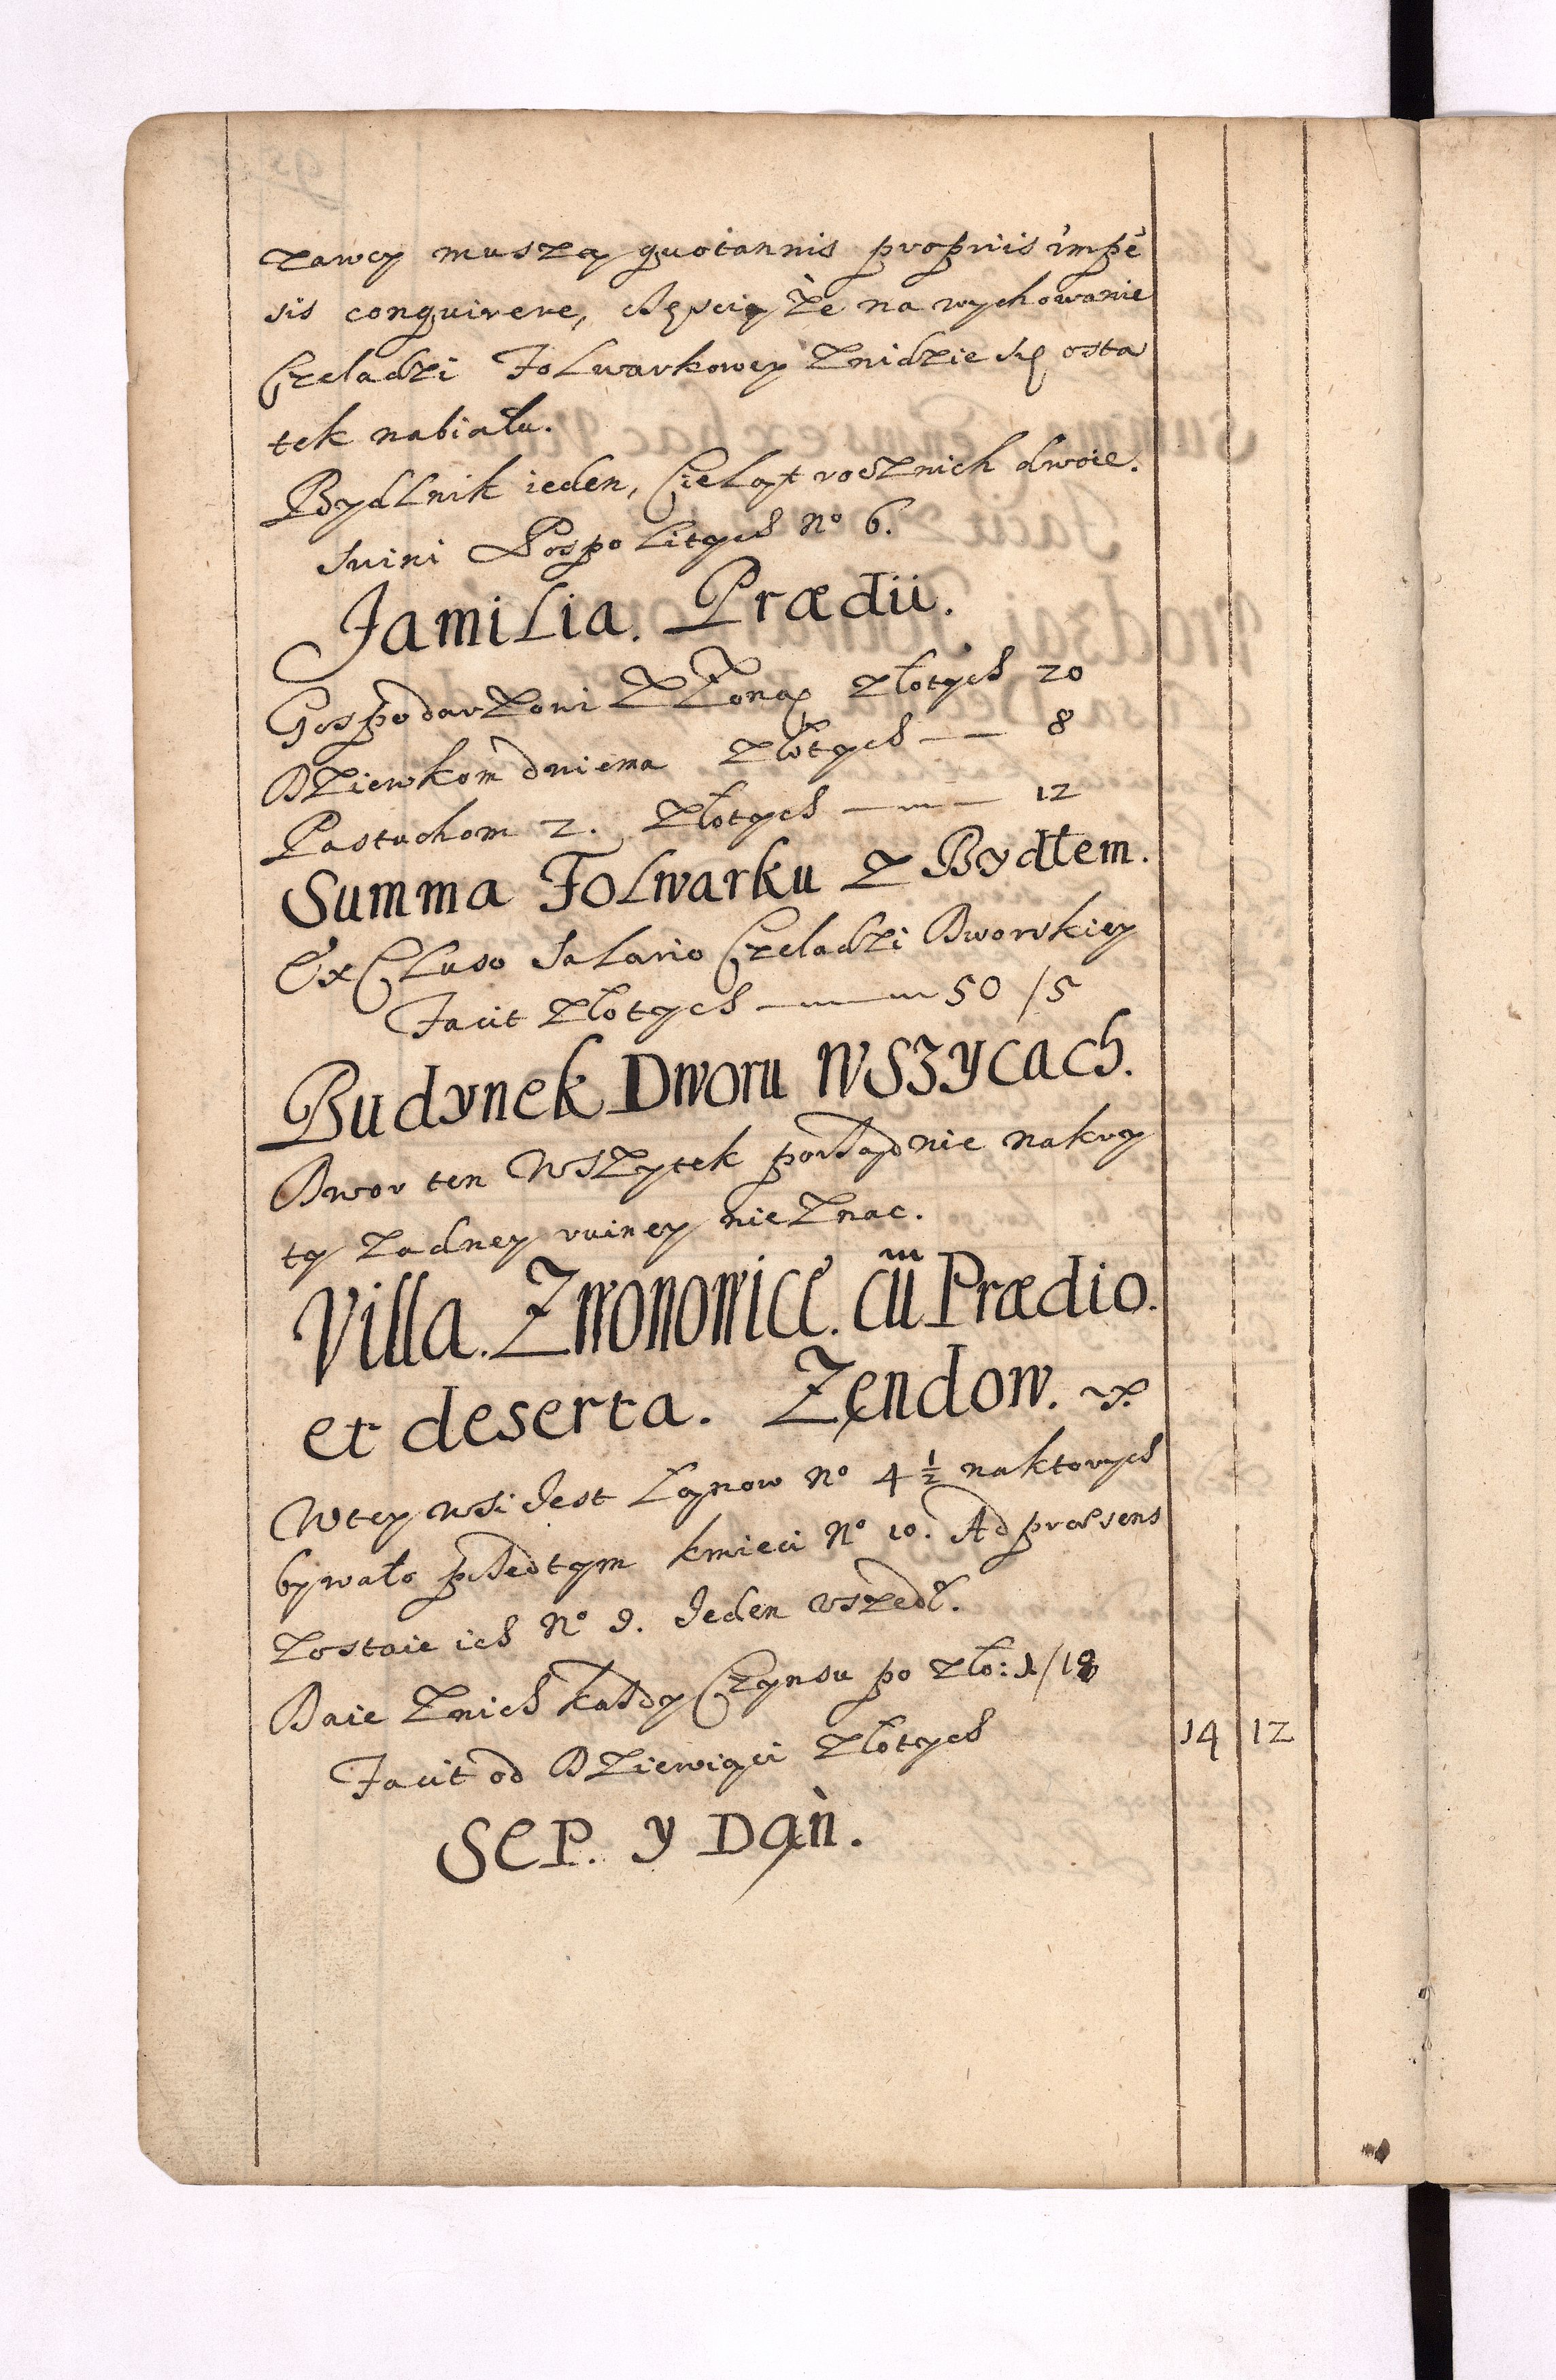 zawcy muszą quotannis propriis impē
sis conquirere, częscią że na wychowanie
Czeladzi Folwarkowey znidzie się osta
tek nabiału.
Bydlnik ieden, Cieląt rocznich dwoie.
Swini Pospolitych No 6.
Familia. Prædii.
Gospodarzowi z Żoną złotych 20
Dziewkom dwiema złotych — 8
Pastuchom 2. złotych — 12
Summa Folwarku z Bydłem.
ExCluso Salario Czeladzi Dworskiey
Facit złotych — 50 / 5
Budynek Dworu WSZYCach.
Dwor ten Wszytek porządnie nakry
ty zadney ruiney nieznac.
Villa. Zwonowice. cum Prædio.
et deserta. Zendow.
Wtey wsi Jest Łanow No 4 ½ naktorych
bywało przedtym kmieci No 10. Ad præsens
zostaie ich No 9. Jeden vszedł.
Daie znich każdy Czynsu po zło: 1/18
Facit od Dziewiąci złotych 14 12
SEP. y Dań.